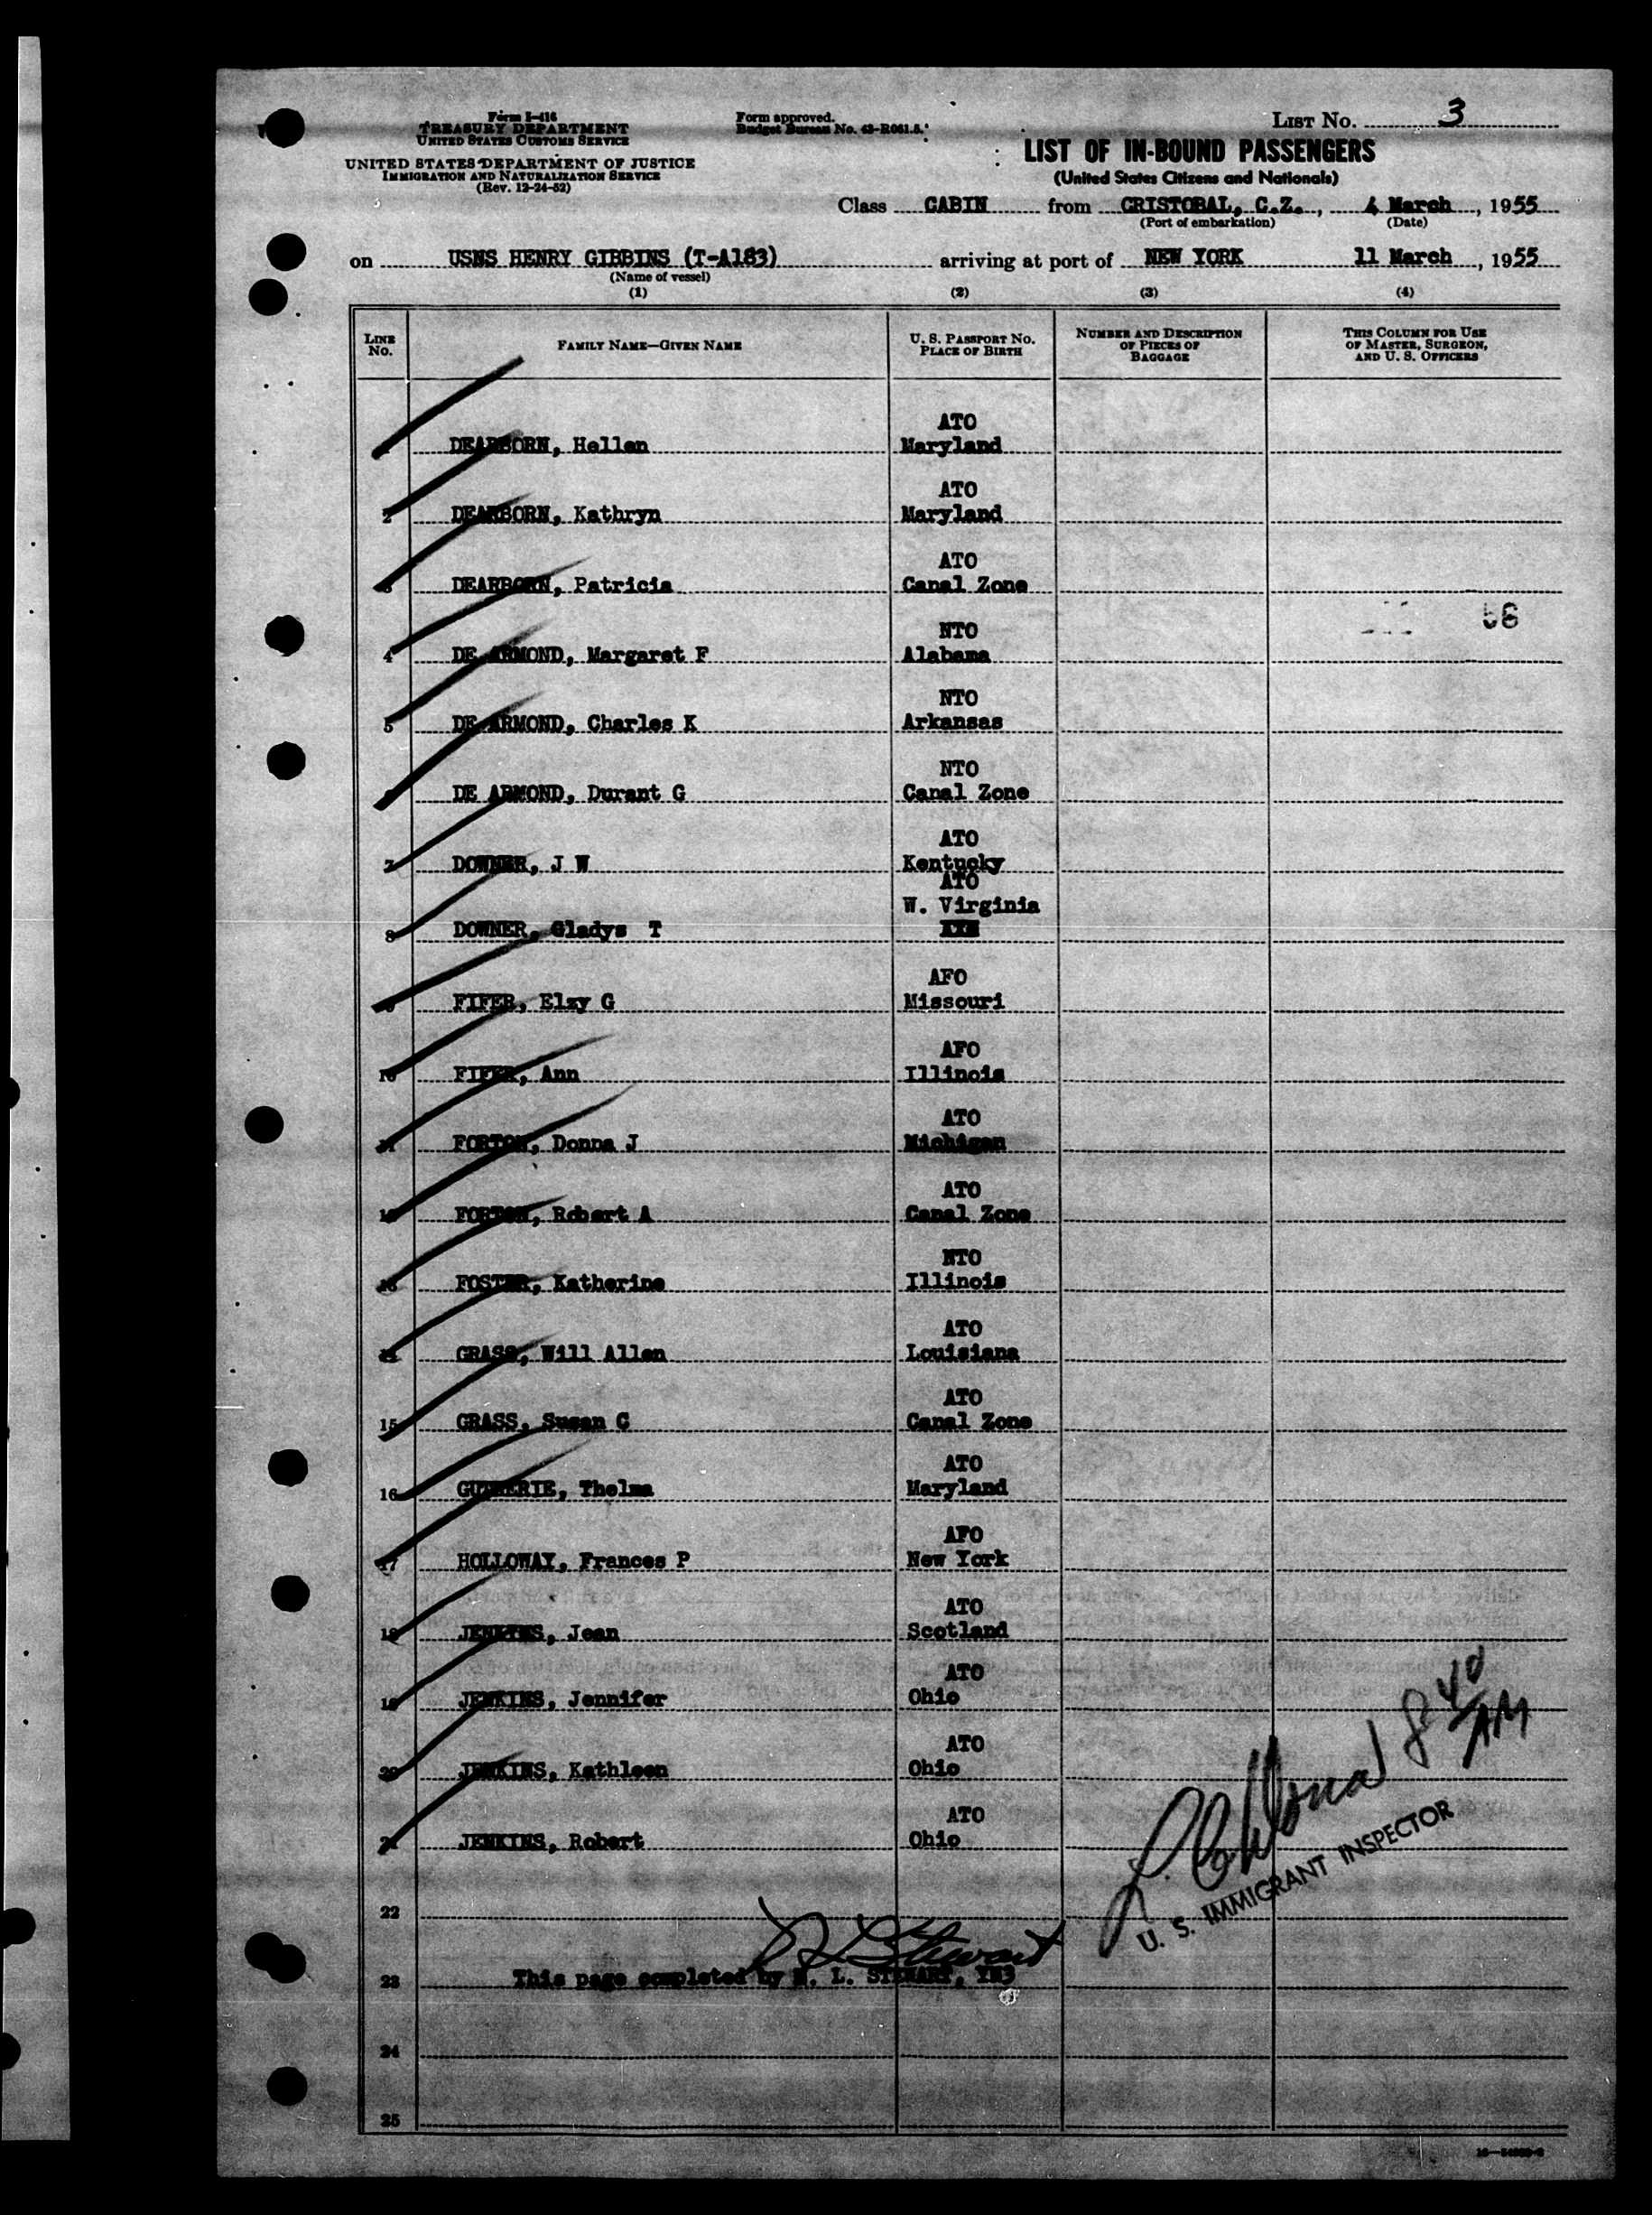 Form I-416
TREASURY DEPARTMENT
UNITED STATES CUSTOMS SERVICE
UNITED STATES DEPARTMENT OF JUSTICE
IMMIGRATION AND NATURALIZATION SERVICE
(Rev. 12-24-52)
Form approved.
Budget Bureau No. 43-R061.5.
LIST NO. 3
LIST OF IN-BOUND PASSENGERS
(United States Citizens and Nationals)
Class CABIN from CRISTOBAL, C.Z., 4 March, 1955
(Port of embarkation) (Date)
on USNS HENRY GIBBINS (T-A183) arriving at port of NEW YORK 11 March, 1955
(Name of vessel)
(1) (2) (3) (4)
LINE NO. FAMILY NAME—GIVEN NAME U. S. PASSPORT NO. PLACE OF BIRTH NUMBER AND DESCRIPTION OF PIECES OF BAGGAGE THIS COLUMN FOR USE OF MASTER, SURGEON, AND U. S. OFFICERS
ATO
DEARBORN, Hellen Maryland
ATO
2 DEARBORN, Kathryn Maryland
ATO
3 DEARBORN, Patricia Canal Zone
NTO
4 DE ARMOND, Margaret F Alabama
NTO
5 DE ARMOND, Charles K Arkansas
NTO
DE ARMOND, Durant G Canal Zone
ATO
7 DOWNER, J W Kentucky
ATO
W. Virginia
8 DOWNER, Gladys T
AFO
FIFER, Elzy G Missouri
AFO
10 FIFER, Ann Illinois
ATO
11 FORTON, Donna J Michigan
ATO
12 FORTON, Robert A Canal Zone
NTO
13 FOSTER, Katherine Illinois
ATO
14 GRASS, Will Allen Louisiana
ATO
15 GRASS, Susan C Canal Zone
ATO
16 GUTHERIE, Thelma Maryland
AFO
17 HOLLOWAY, Frances P New York
ATO
18 JENKINS, Jean Scotland
ATO
19 JENKINS, Jennifer Ohio
ATO
20 JENKINS, Kathleen Ohio
ATO
21 JENKINS, Robert Ohio
8 40 AM
U. S. IMMIGRANT INSPECTOR
22
Stewart
23 This page completed by L. STEWART, YN3
24
25